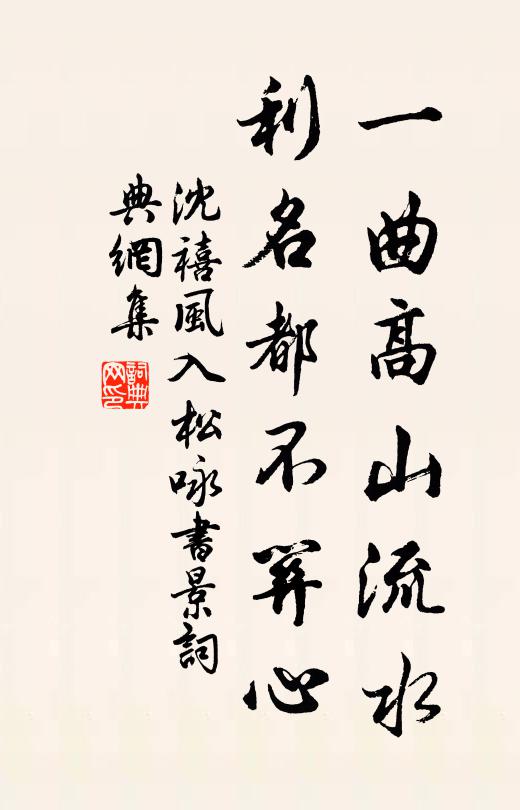 一曲高山流水
利名都不關心
沈禧風入松咏書景詞
典網集
詞典網印